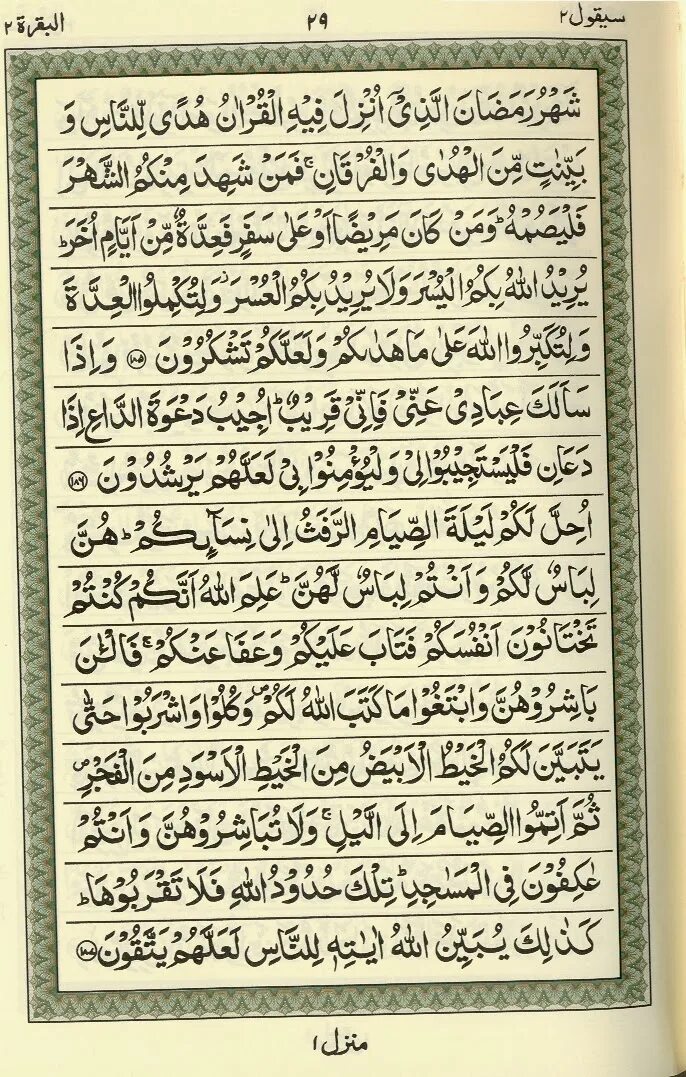 سيقول ٢ ٢٩ البقرة ٢
شَهْرُ رَمَضَانَ الَّذِىْٓ اُنْزِلَ فِيْهِ الْقُرْاٰنُ هُدًى لِّلنَّاسِ وَ
بَيِّنٰتٍ مِّنَ الْهُدٰى وَالْفُرْقَانِ ۚ فَمَنْ شَهِدَ مِنْكُمُ الشَّهْرَ
فَلْيَصُمْهُ ؕ وَمَنْ كَانَ مَرِيْضًا اَوْ عَلٰى سَفَرٍ فَعِدَّةٌ مِّنْ اَيَّامٍ اُخَرَ ؕ
يُرِيْدُ اللّٰهُ بِكُمُ الْيُسْرَ وَلَا يُرِيْدُ بِكُمُ الْعُسْرَ ؗ وَلِتُكْمِلُوا الْعِدَّةَ
وَلِتُكَبِّرُوا اللّٰهَ عَلٰى مَا هَدٰىكُمْ وَلَعَلَّكُمْ تَشْكُرُوْنَ ﴿١٨٥﴾ وَاِذَا
سَاَلَكَ عِبَادِىْ عَنِّىْ فَاِنِّىْ قَرِيْبٌ ؕ اُجِيْبُ دَعْوَةَ الدَّاعِ اِذَا
دَعَانِ فَلْيَسْتَجِيْبُوْا لِىْ وَلْيُؤْمِنُوْا بِىْ لَعَلَّهُمْ يَرْشُدُوْنَ ﴿١٨٦﴾
اُحِلَّ لَكُمْ لَيْلَةَ الصِّيَامِ الرَّفَثُ اِلٰى نِسَآئِكُمْ ؕ هُنَّ
لِبَاسٌ لَّكُمْ وَاَنْتُمْ لِبَاسٌ لَّهُنَّ ؕ عَلِمَ اللّٰهُ اَنَّكُمْ كُنْتُمْ
تَخْتَانُوْنَ اَنْفُسَكُمْ فَتَابَ عَلَيْكُمْ وَعَفَا عَنْكُمْ ۚ فَالْـٰٔنَ
بَاشِرُوْهُنَّ وَابْتَغُوْا مَا كَتَبَ اللّٰهُ لَكُمْ ۪ وَكُلُوْا وَاشْرَبُوْا حَتّٰى
يَتَبَيَّنَ لَكُمُ الْخَيْطُ الْاَبْيَضُ مِنَ الْخَيْطِ الْاَسْوَدِ مِنَ الْفَجْرِ ۪
ثُمَّ اَتِمُّوا الصِّيَامَ اِلَى الَّيْلِ ۚ وَلَا تُبَاشِرُوْهُنَّ وَاَنْتُمْ
عٰكِفُوْنَ فِى الْمَسٰجِدِ ؕ تِلْكَ حُدُوْدُ اللّٰهِ فَلَا تَقْرَبُوْهَا ؕ
كَذٰلِكَ يُبَيِّنُ اللّٰهُ اٰيٰتِهٖ لِلنَّاسِ لَعَلَّهُمْ يَتَّقُوْنَ ﴿١٨٧﴾
منزل ١